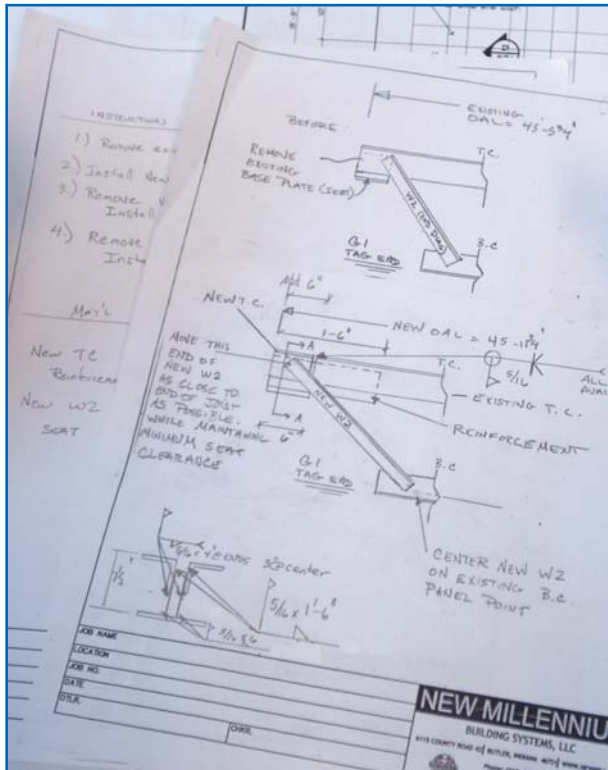 INSTRUCTIONS
1.) Remove
2.) Install New
3.) Remove
Install
4.) Remove
MAT'L
New TC
New W2
SEAT
BEFORE
EXISTING
OAL = 45-5¾"
REMOVE
EXISTING
BASE PLATE (SEAT)
T.C.
W2 (END DIAG)
B.C
G1
TAG END
Add 6"
NEW T.C.
1-6"
NEW OAL = 45-11¾"
MOVE THIS
END OF
NEW W2
AS CLOSE TO
END OF JOIST
AS POSSIBLE.
WHILE MAINTAINING
MINIMUM SEAT
CLEARANCE
A
A
6"
NEW W2
T.C.
5/16
ALL
AVAI
EXISTING T.C.
REINFORCEMENT
G1
TAG END
B.C
CENTER NEW W2
ON EXISTING B.C.
PANEL POINT
7½"
center
5/16 x 1'-6"
JOB NAME
LOCATION
JOB NO.
DATE
DTLR.
CHKR.
NEW MILLENNIU
BUILDING SYSTEMS, LLC
BUTLER, INDIANA